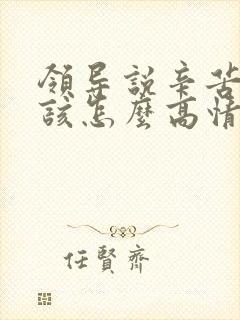 領导說辛苦
該怎麼高情
任賢齊